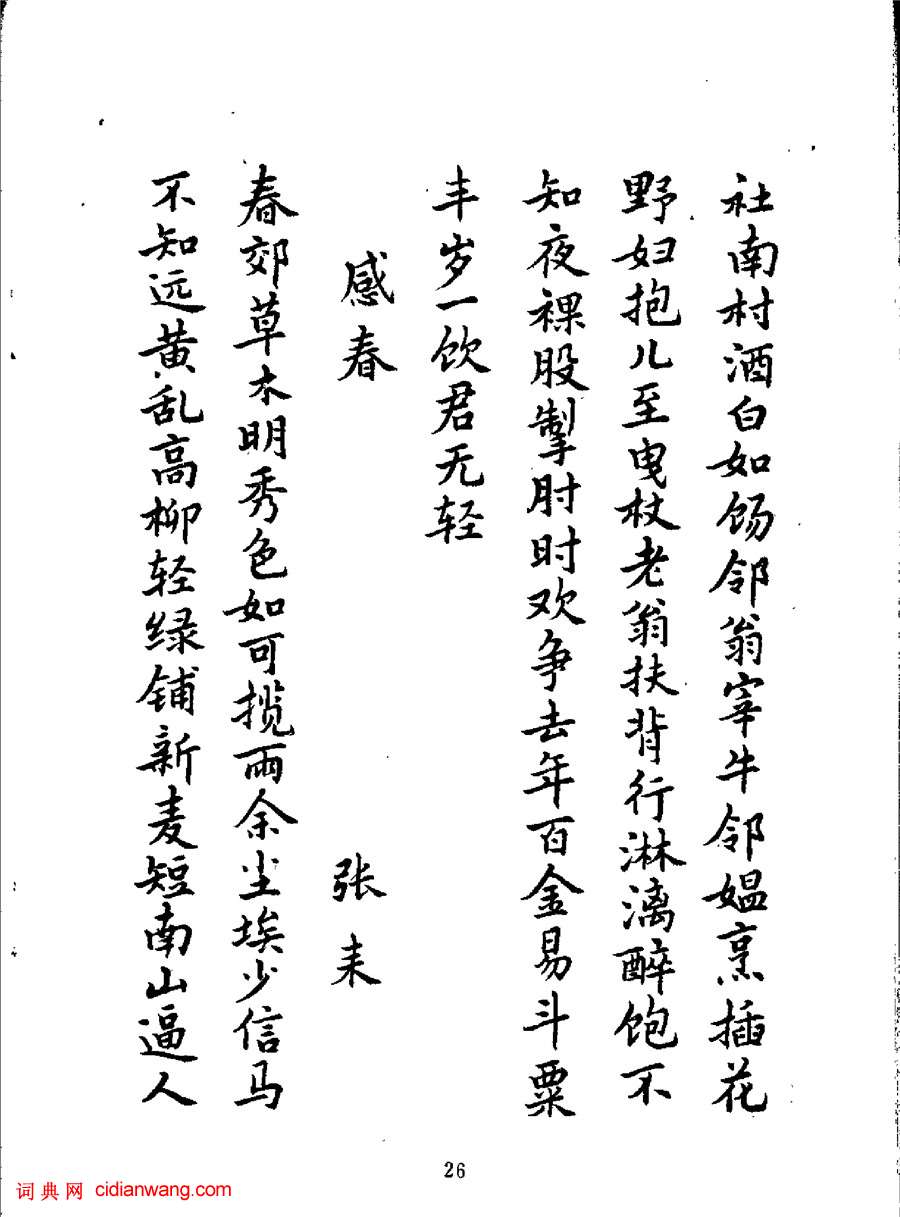 社南村酒白如饧邻翁宰牛邻媪烹插花
野妇抱儿至曳杖老翁扶背行淋漓醉饱不
知夜裸股掣肘时欢争去年百金易斗粟
丰岁一饮君无轻
感春 张耒
春郊草木明秀色如可揽雨余尘埃少信马
不知远黄乱高柳轻绿铺新麦短南山逼人
26
词典网 cidianwang.com